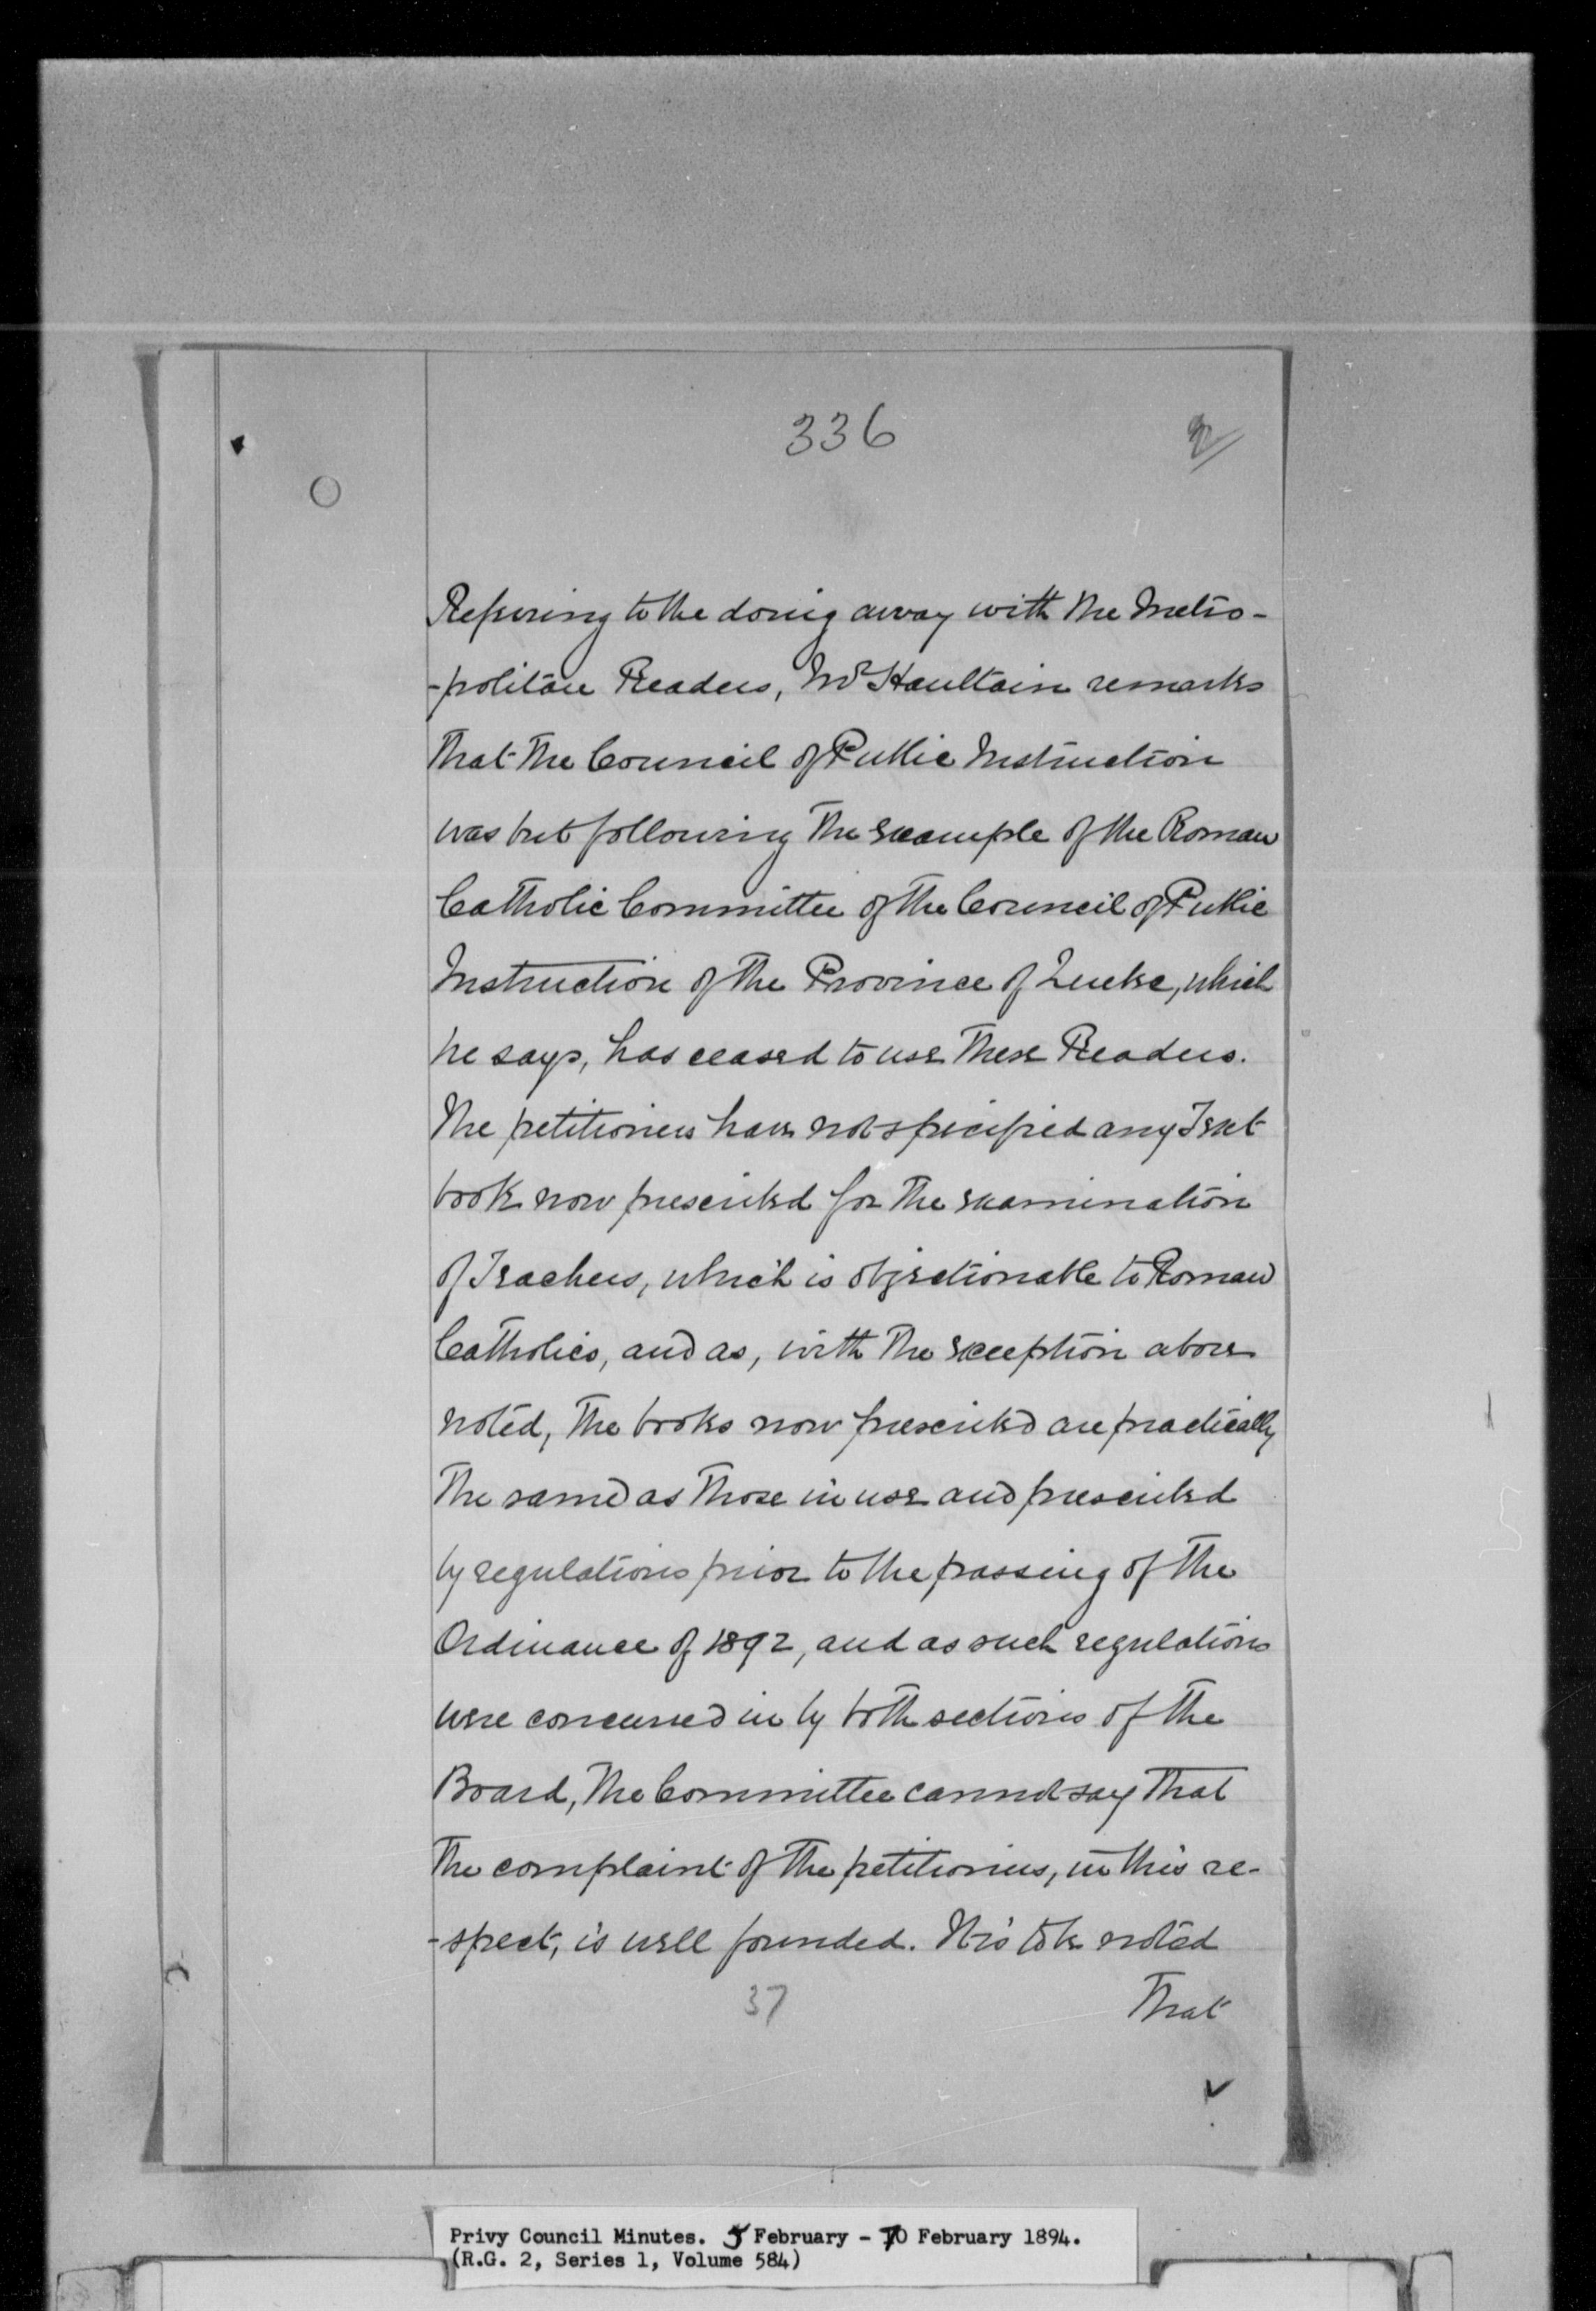 336
Referring to the doing away with the Metro-
-politan Readers, Mr Haultain remarks
that the Council of Public Instruction
was but following the example of the Roman
Catholic Committee of the Council of Public
Instruction of the Province of Quebec, which
he says, has ceased to use these Readers.
The petitioners have not specified any Text
book now prescribed for the examination
of Teachers, which is objectionable to Roman
Catholics, and as, with the exception above
noted, the books now prescribed are practically
the same as those in use and prescribed
by regulations prior to the passing of the
Ordinance of 1892, and as such regulations
were concurred in by both sections of the
Board, the Committee cannot say that
the complaint of the petitioners, in this re-
-spect, is well founded. It is to be noted
37
that
Privy Council Minutes. 5 February - 10 February 1894.
(R.G. 2, Series 1, Volume 584)